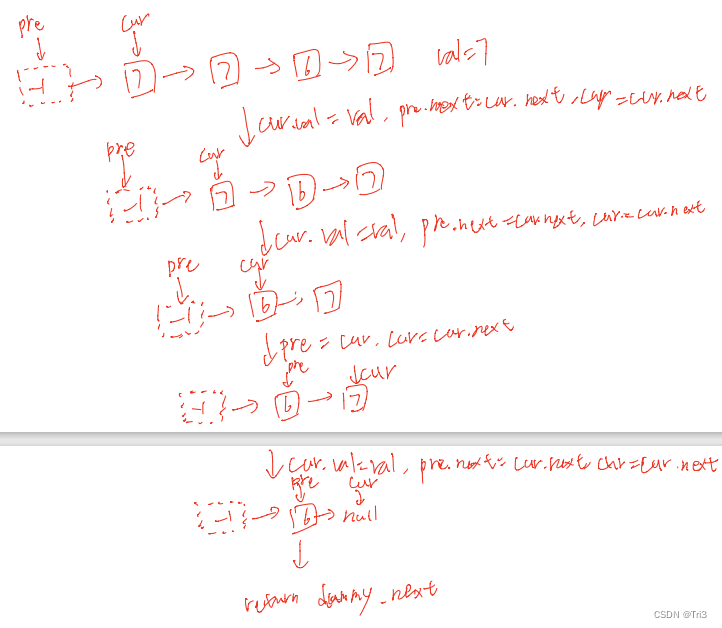 pre cur
-1 7 7 6 7 val=7
cur.val = val, pre.next=cur.next, cur=cur.next
pre cur
-1 7 6 7
cur.val=val, pre.next=cur.next, cur=cur.next
pre cur
-1 6 7
pre = cur, cur=cur.next
pre cur
-1 6 7
cur.val=val, pre.next=cur.next cur=cur.next
pre cur
-1 6 null
return dummy.next
CSDN @Tri3